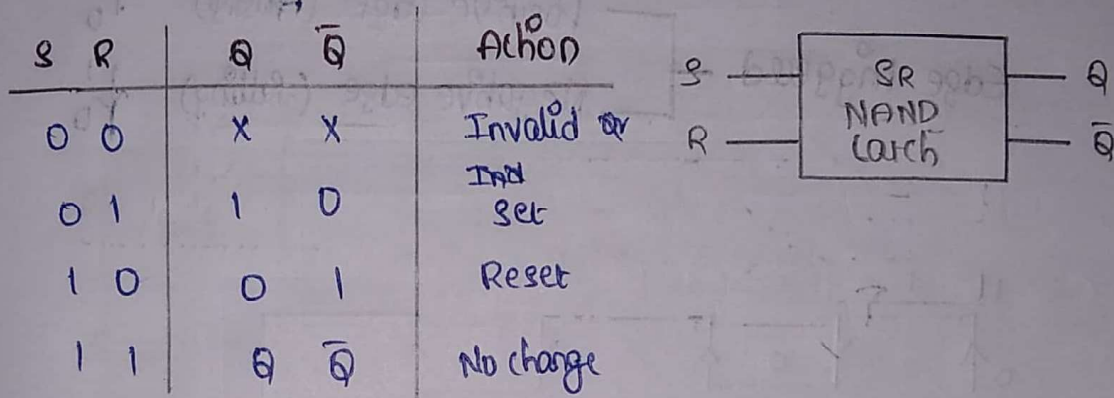 S R Q Q̅ Action
0 0 x x Invalid or
0 1 1 0 Set
1 0 0 1 Reset
1 1 Q Q̅ No change
S SR Q
NAND
R Latch Q̅
Edge